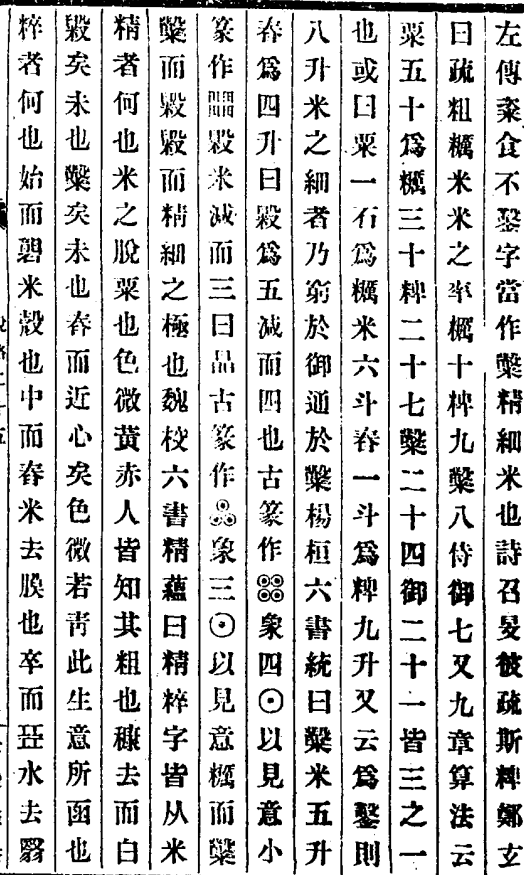 左傳粢食不鑿字當作糳精細米也詩召旻彼疏斯粺鄭玄
曰疏粗糲米米之率糲十粺九糳八侍御七又九章算法云
粟五十爲糲三十粺二十七糳二十四御二十一皆三之一
也或曰粟一石爲糲米六斗舂一斗爲粺九升又云爲鑿則
八升米之細者乃窮於御通於糳楊桓六書統曰糳米五升
舂爲四升曰毇爲五減而四也古篆作象四以見意小
篆作毇米減而三曰品古篆作象三以見意糲而糳
糳而毇毇而精細之極也魏校六書精蘊曰精粹字皆从米
精者何也米之脫粟也色微黃赤人皆知其粗也穅去而白
毇矣未也糳矣未也舂而近心矣色微若靑此生意所函也
粹者何也始而礱米殼也中而舂米去膜也卒而水去